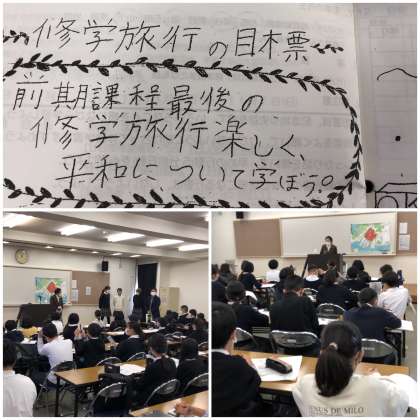 修学旅行の目標
前期課程最後の
修学旅行楽しく、
平和について学ぼう。
NUS DE MILO